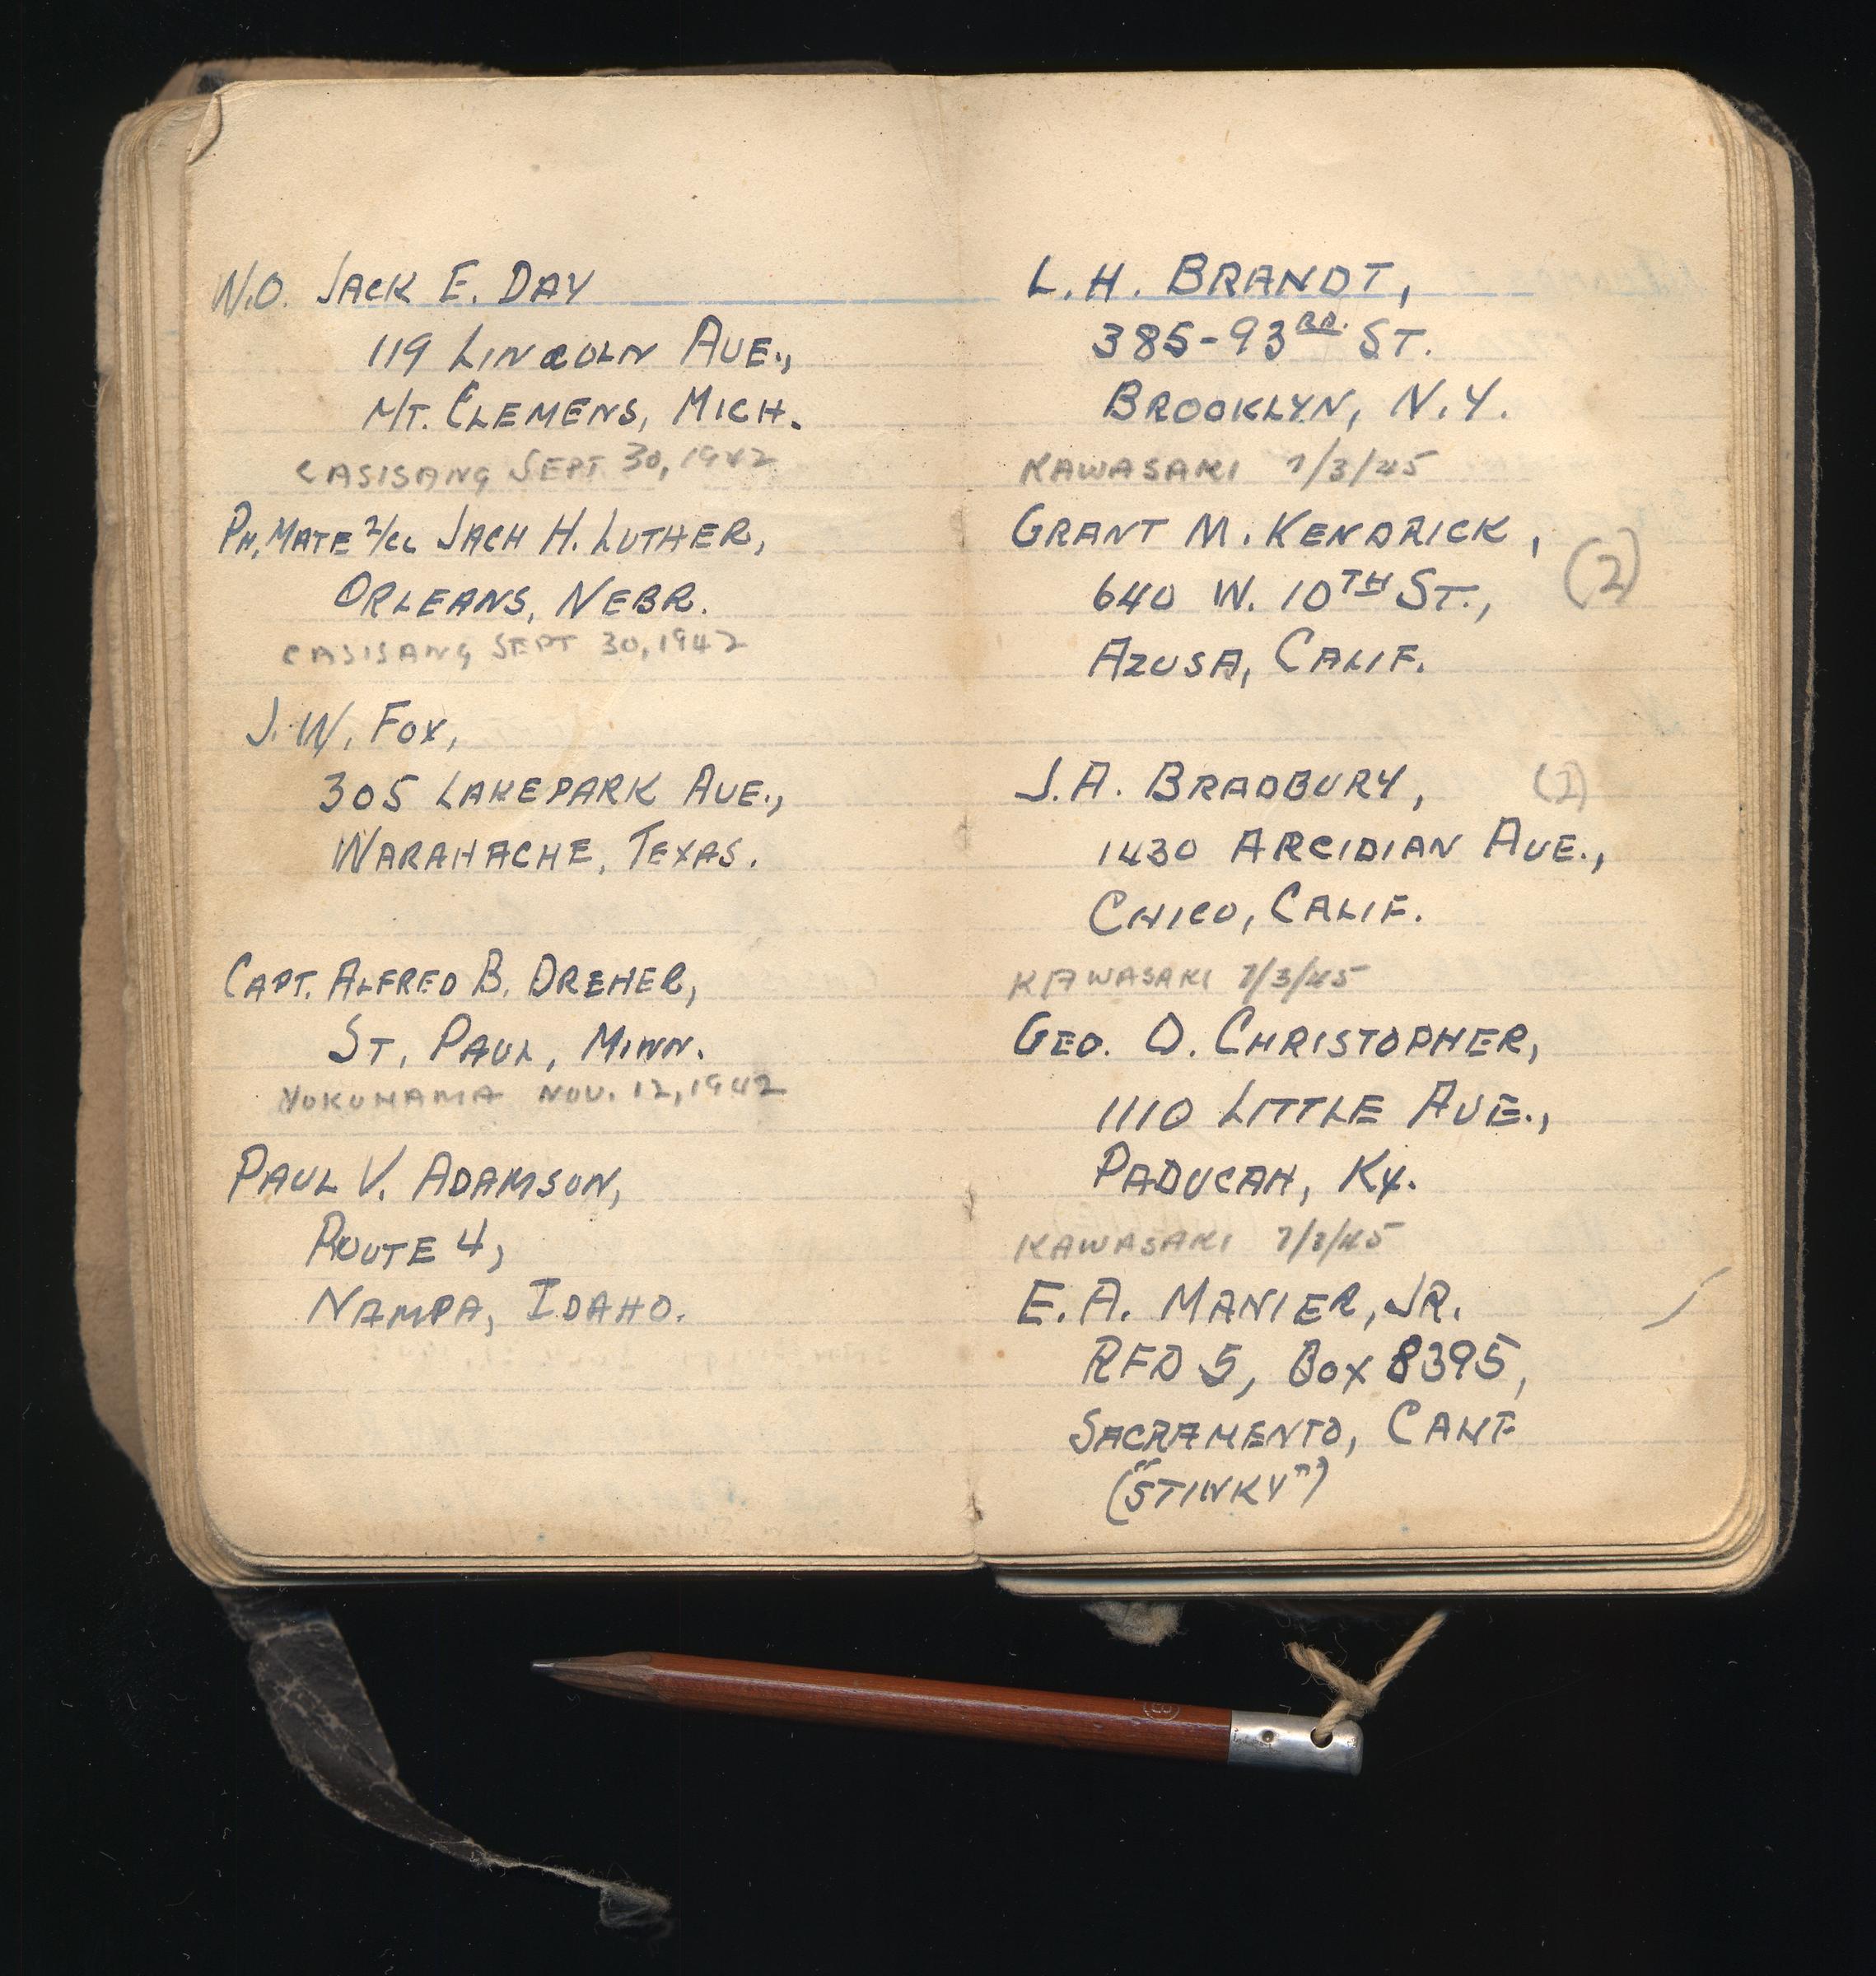 W.O. JACK E. DAY
119 LINCOLN AVE.,
MT. CLEMENS, MICH.
CASISANG SEPT 30, 1942
PH. MATE 2/CL JACK H. LUTHER,
ORLEANS, NEBR.
CASISANG SEPT 30, 1942
J. W. FOX,
305 LAKEPARK AVE.,
WARAHACHE, TEXAS.
CAPT. ALFRED B. DREHER,
ST. PAUL, MINN.
YOKOHAMA NOV. 12, 1942
PAUL V. ADAMSON,
ROUTE 4,
NAMPA, IDAHO.
L. H. BRANDT,
385-93RD. ST.
BROOKLYN, N.Y.
KAWASAKI 7/3/45
GRANT M. KENDRICK,
(2)
640 W. 10TH ST.,
AZUSA, CALIF.
J. A. BRADBURY,
1430 ARCIDIAN AVE.,
CHICO, CALIF.
KAWASAKI 7/3/45
GEO. O. CHRISTOPHER,
1110 LITTLE AVE.,
PADUCAH, KY.
KAWASAKI 7/3/45
E. A. MANIER, JR.
RFD 5, BOX 8395,
SACRAMENTO, CALIF
("STINKY")